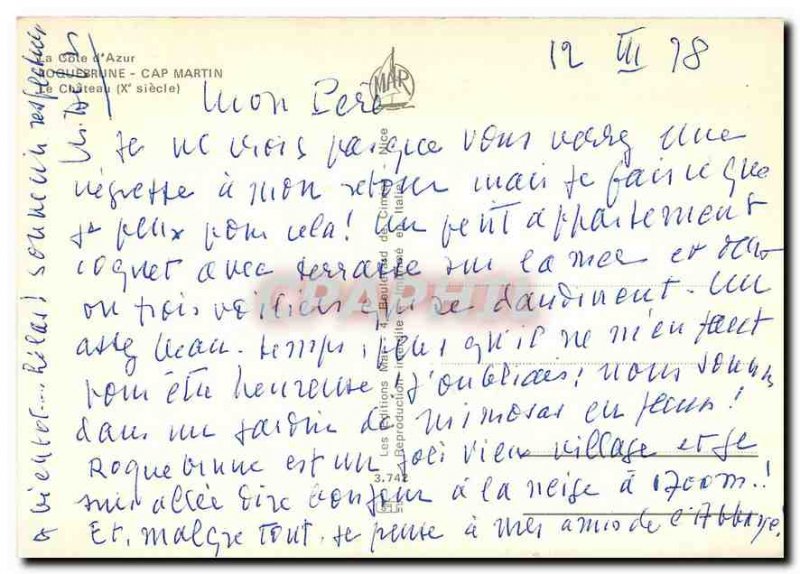 La Côte d'Azur
ROQUEBRUNE - CAP MARTIN
Le Château (Xe siècle)
MAR
12 III 78
Mon Père
Je ne crois pas que vous verrez une
négresse à mon retour mais je fais ce que
je peux pour cela! Un petit appartement
coquet avec terrasse sur la mer et deux
ou trois voiliers qui se dandinent. Un
assez beau temps, plus qu'il ne m'en faut
pour être heureuse! J'oubliais: nous sommes
dans un jardin de mimosas en fleurs!
Roquebrune est un joli vieux village et je
suis allée dire bonjour à la neige à 1700m!
Et, malgré tout, je pense à mes amis de l'Abbaye!
à bientôt... hélas! souvenir respectueux
Les Editions Mar, 4, Boulevard de Cimiez - Nice
Reproduction interdite - Imprimé en Italie
3.742